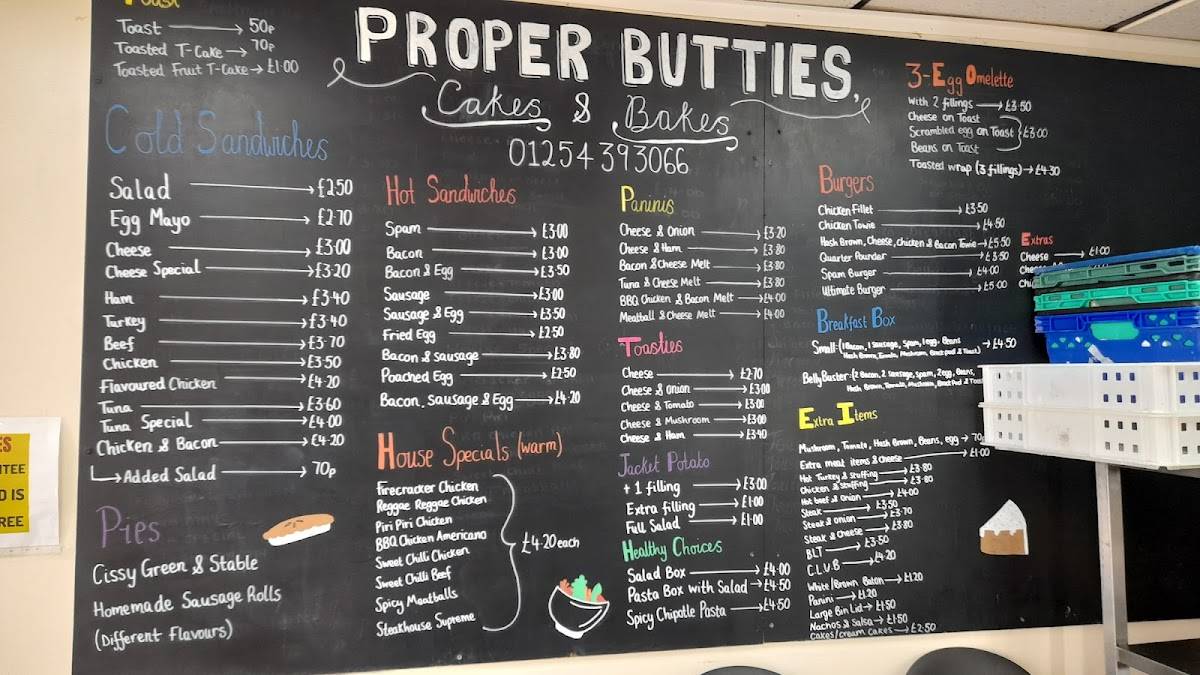 Toast
Toast → 50p
Toasted T-Cake → 70p
Toasted Fruit T-Cake → £1.00
PROPER BUTTIES,
Cakes & Bakes
01254 393066
Cold Sandwiches
Salad → £2.50
Egg Mayo → £2.70
Cheese → £3.00
Cheese Special → £3.20
Ham → £3.40
Turkey → £3.40
Beef → £3.70
Chicken → £3.50
Flavoured Chicken → £4.20
Tuna → £3.60
Tuna Special → £4.00
Chicken & Bacon → £4.20
↳ Added Salad → 70p
Pies
Cissy Green & Stable
Homemade Sausage Rolls
(Different Flavours)
Hot Sandwiches
Spam → £3.00
Bacon → £3.00
Bacon & Egg → £3.50
Sausage → £3.00
Sausage & Egg → £3.50
Fried Egg → £2.50
Bacon & Sausage → £3.80
Poached Egg → £2.50
Bacon, Sausage & Egg → £4.20
House Specials (warm)
Firecracker Chicken
Reggae Reggae Chicken
Piri Piri Chicken
BBQ Chicken Americano
Sweet Chilli Chicken
Sweet Chilli Beef
Spicy Meatballs
Steakhouse Supreme
£4.20 each
Paninis
Cheese & Onion → £3.20
Cheese & Ham → £3.80
Bacon & Cheese Melt → £3.80
Tuna & Cheese Melt → £3.80
BBQ Chicken & Bacon Melt → £4.00
Meatball & Cheese Melt → £4.00
Toasties
Cheese → £2.70
Cheese & Onion → £3.00
Cheese & Tomato → £3.00
Cheese & Mushroom → £3.00
Cheese & Ham → £3.40
Jacket Potato
+ 1 filling → £3.00
Extra filling → £1.00
Full Salad → £1.00
Healthy Choices
Salad Box → £4.00
Pasta Box with Salad → £4.50
Spicy Chipotle Pasta → £4.50
3-Egg Omelette
With 2 fillings → £3.50
Cheese on Toast
Scrambled egg on Toast } £3.00
Beans on Toast
Toasted wrap (3 fillings) → £4.30
Burgers
Chicken Fillet → £3.50
Chicken Towie → £4.50
Hash Brown, Cheese, Chicken & Bacon Towie → £5.50
Quarter Pounder → £3.50
Spam Burger → £4.00
Ultimate Burger → £5.00
Extras
Cheese → £1.00
Breakfast Box
Small: (1 Bacon, 1 Sausage, Spam, 1 egg, Beans
Hash Brown, Tomato, Mushroom, Bread pud & Toast) → £4.50
Belly Buster: (2 Bacon, 2 Sausage, Spam, 2 egg, Beans,
Hash Brown, Tomato, Mushroom, Bread Pud & Toast
Extra Items
Mushroom, Tomato, Hash Brown, Beans, egg → 70p
Extra meat items & Cheese → £1.00
Hot Turkey & Stuffing → £3.80
Chicken & Stuffing → £3.80
Hot beef & Onion → £4.00
Steak → £3.50
Steak & Onion → £3.70
Steak & Cheese → £3.80
BLT → £3.50
C.L.U.B → £4.20
White/Brown Baton → £1.20
Panini → £1.20
Large Bin Lid → £1.50
Nachos & Salsa → £1.50
Cakes/Cream Cakes → £2.50